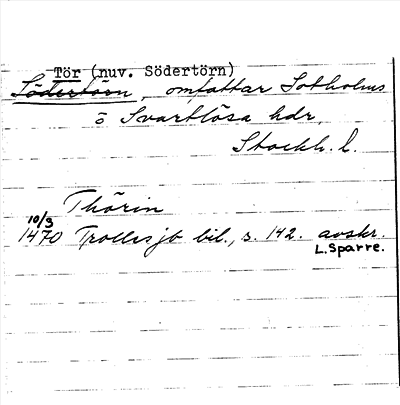 Tör (nuv. Södertörn)
Södertörn, omfattar Sotholms
o Svartlösa hdr,
Stockh. l.
Thörin
10/3
1470 Trollesjb bil., s. 142. avskr.
L. Sparre.